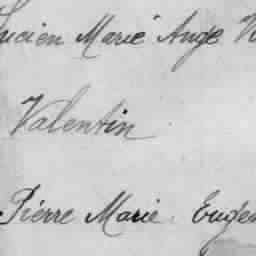 Lucien Marie Ange V
Valentin
Pierre Marie Eugè